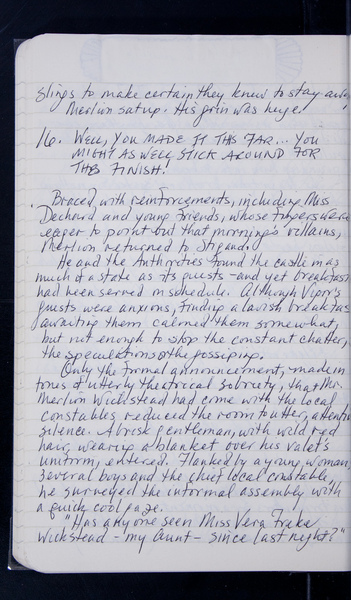 slings to make certain they knew to stay away,
Merlon sat up. His grin was huge!
16. WELL, YOU MADE IT THIS FAR... YOU
MIGHT AS WELL STICK AROUND FOR
THE FINISH!
Braced with reinforcements, including Miss
Dechard and young friends, whose fingers were
eager to point out that morning's villains,
Merlon returned to Stigand.
He and the Authorities found the castle in as
much of a state as its guests - and yet breakfast
had been served on schedule. Although Vipor's
guests were anxious, finding a lavish breakfast
awaiting them calmed them somewhat,
but not enough to stop the constant chatter,
the speculations or the gossiping.
Only the formal announcement, made in
tones of utterly theatrical sobriety, that Mr.
Merlon Wickstead had come with the local
constables reduced the room to utter, attentive
silence. A brisk gentleman, with wild red
hair, wearing a blanket over his valet's
uniform, entered. Flanked by a young woman,
several boys and the chief local constable,
he surveyed the informal assembly with
a quick cool gaze.
"Has anyone seen Miss Vera Frake
Wickstead - my Aunt - since last night?"